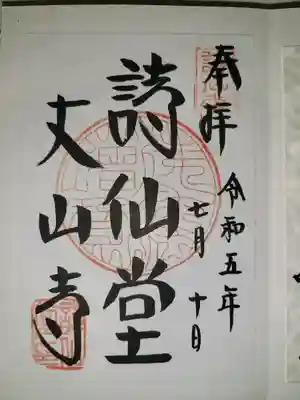 奉拝
令和五年
七月十日
詩仙堂
丈山寺